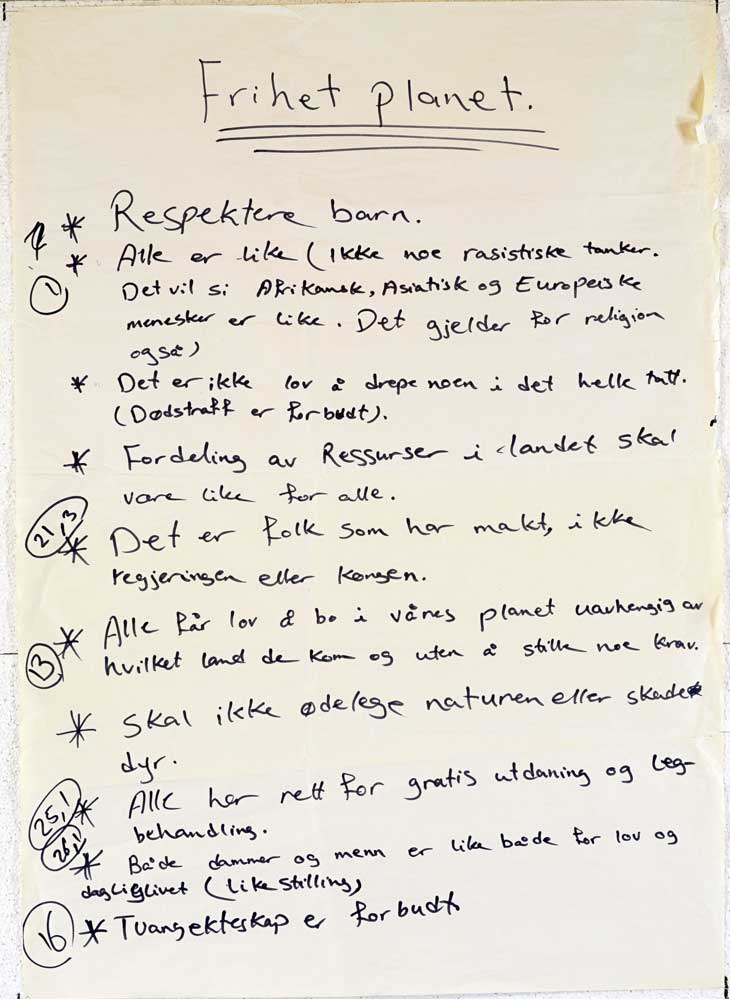 Frihet planet.
* Respektere barn.
1 * Alle er like (Ikke noe rasistiske tanker.
Det vil si Afrikansk, Asiatisk og Europeiske
menesker er like. Det gjelder for religion
også)
* Det er ikke lov å drepe noen i det helle tatt.
(Dødstraff er forbudt).
* Fordeling av Ressurser i landet skal
være like for alle.
21,3 * Det er folk som har makt, ikke
regjeringen eller kongen.
13 * Alle får lov å bo i vånes planet uavhengig av
hvilket land de kom og uten å stille noe krav.
* Skal ikke ødelege naturen eller skade
dyr.
25,1 * Alle har rett for gratis utdaning og leg-
behandling.
26,1 * Både dammer og menn er like både for lov og
dagligLivet (like stilling)
16 * Tvangekteskap er forbudt